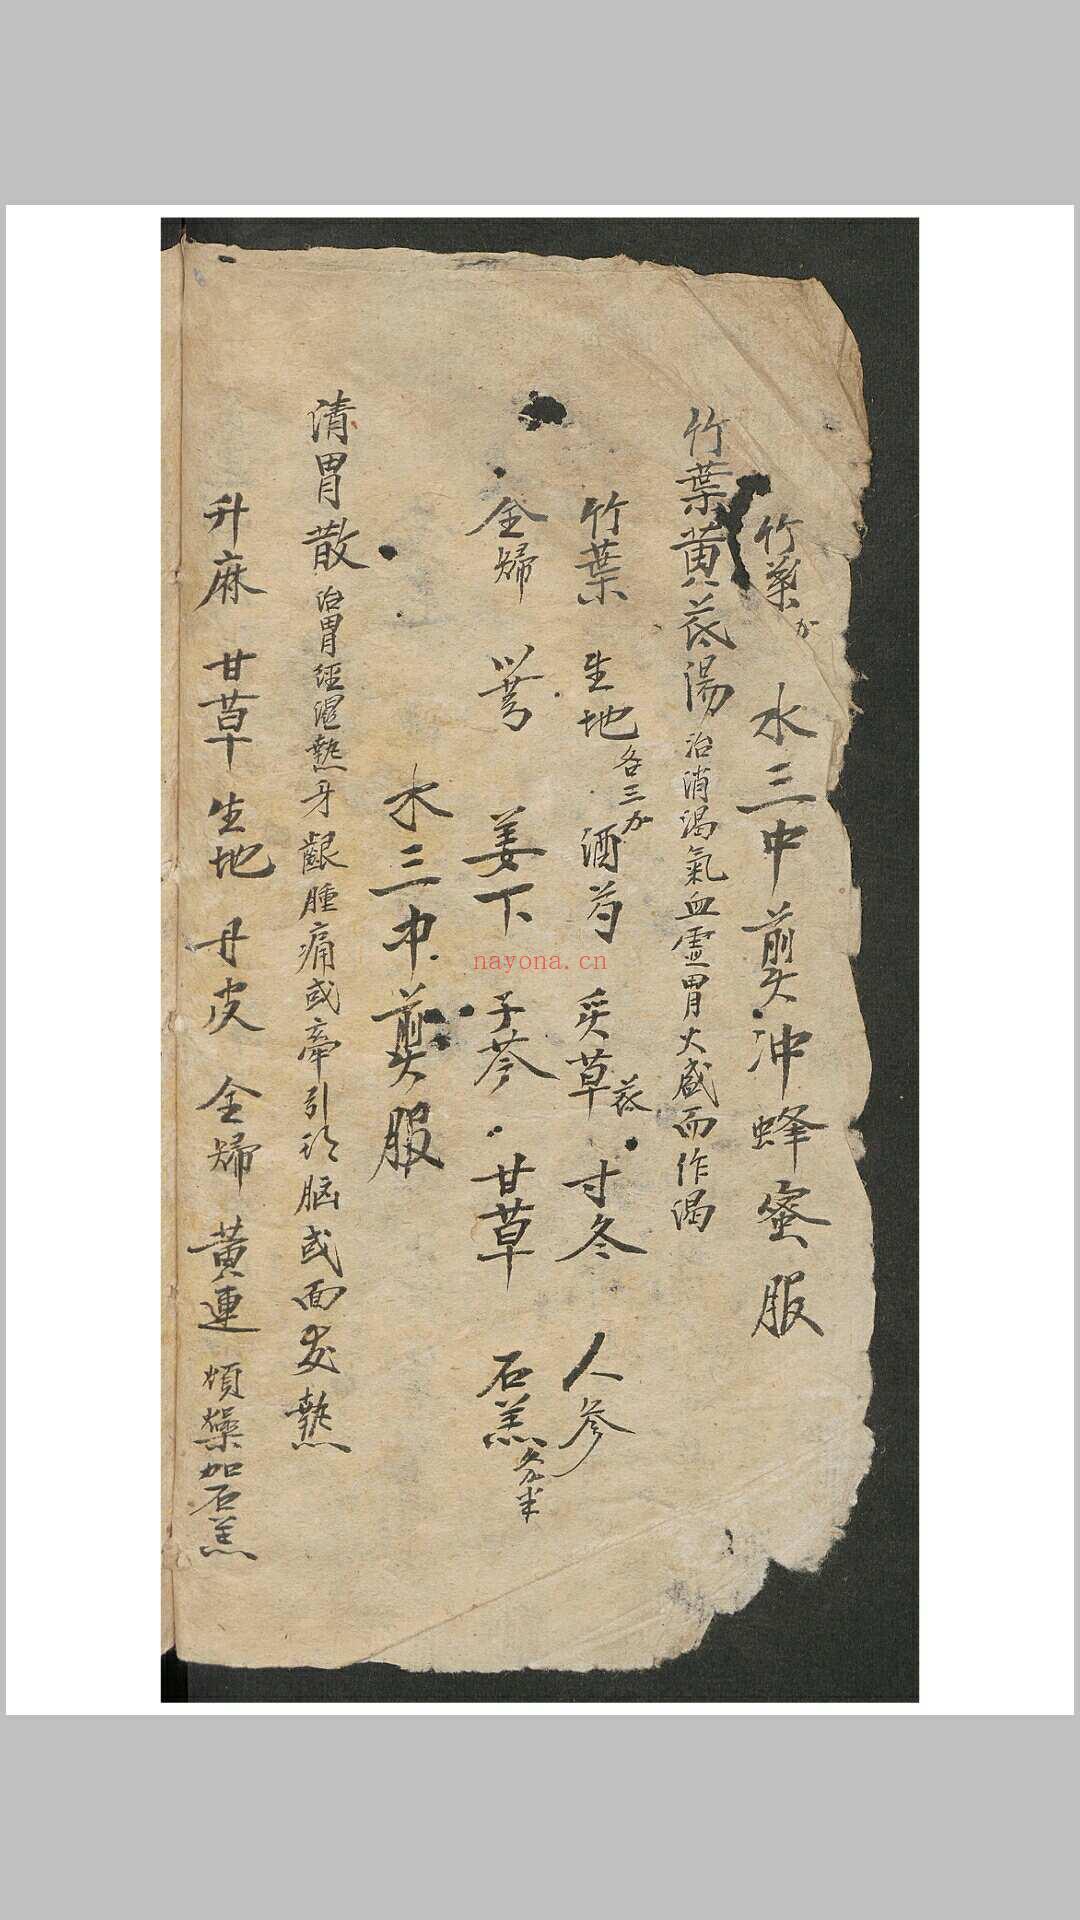 竹葉 水三中煎冲蜂蜜服
竹葉黃芪湯治消渴氣血虛胃火盛而作渴
竹葉 生地各三 酒芍 炙草芪 寸冬 人參
全歸 芎 姜下 子芩 甘草 石羔
水三中煎服
清胃散治胃經濕熱牙齦腫痛或牽引頭脑或面发熱
升麻 甘草 生地 丹皮 全歸 黃連 煩燥加石羔
nayona.cn